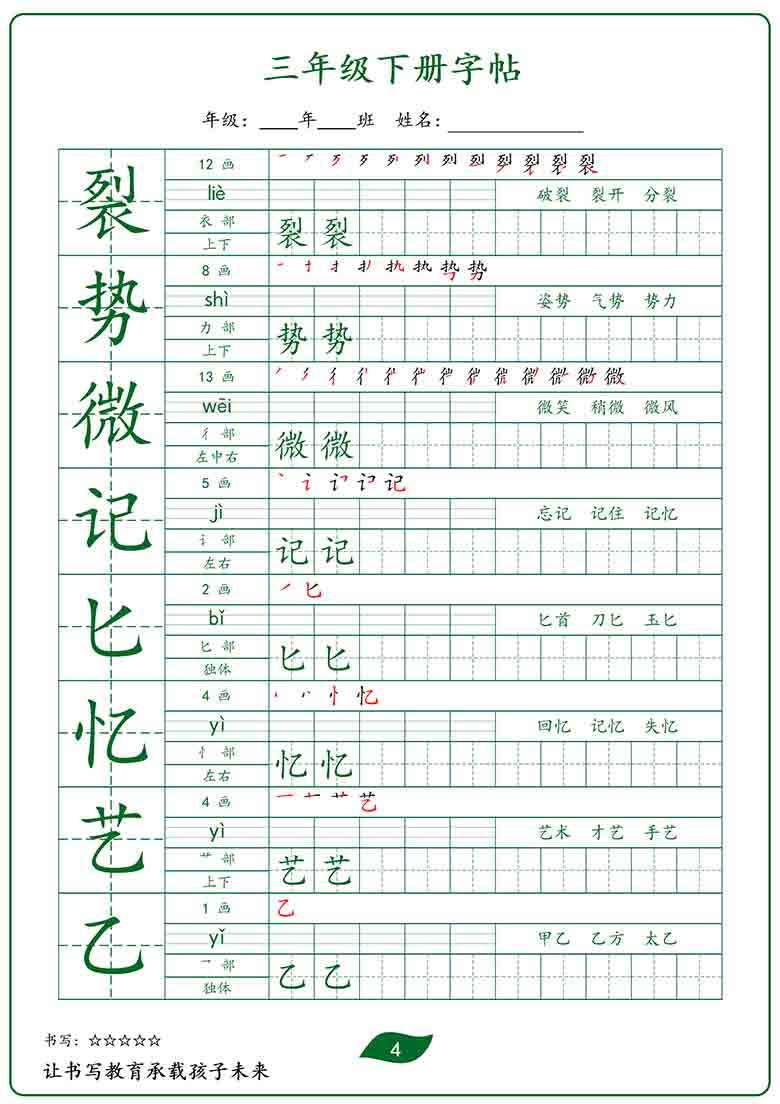 三年级下册字帖
年级：____年____班 姓名：______________
裂
12 画
liè
破裂 裂开 分裂
衣 部
上下
裂 裂
势
8 画
shì
姿势 气势 势力
力 部
上下
势 势
微
13 画
wēi
微笑 稍微 微风
彳 部
左中右
微 微
记
5 画
jì
忘记 记住 记忆
讠 部
左右
记 记
匕
2 画
bǐ
匕首 刀匕 玉匕
匕 部
独体
匕 匕
忆
4 画
yì
回忆 记忆 失忆
忄 部
左右
忆 忆
艺
4 画
yì
艺术 才艺 手艺
艹 部
上下
艺 艺
乙
1 画
乙
yǐ
甲乙 乙方 太乙
乛 部
独体
乙 乙
书写：☆☆☆☆☆
4
让书写教育承载孩子未来